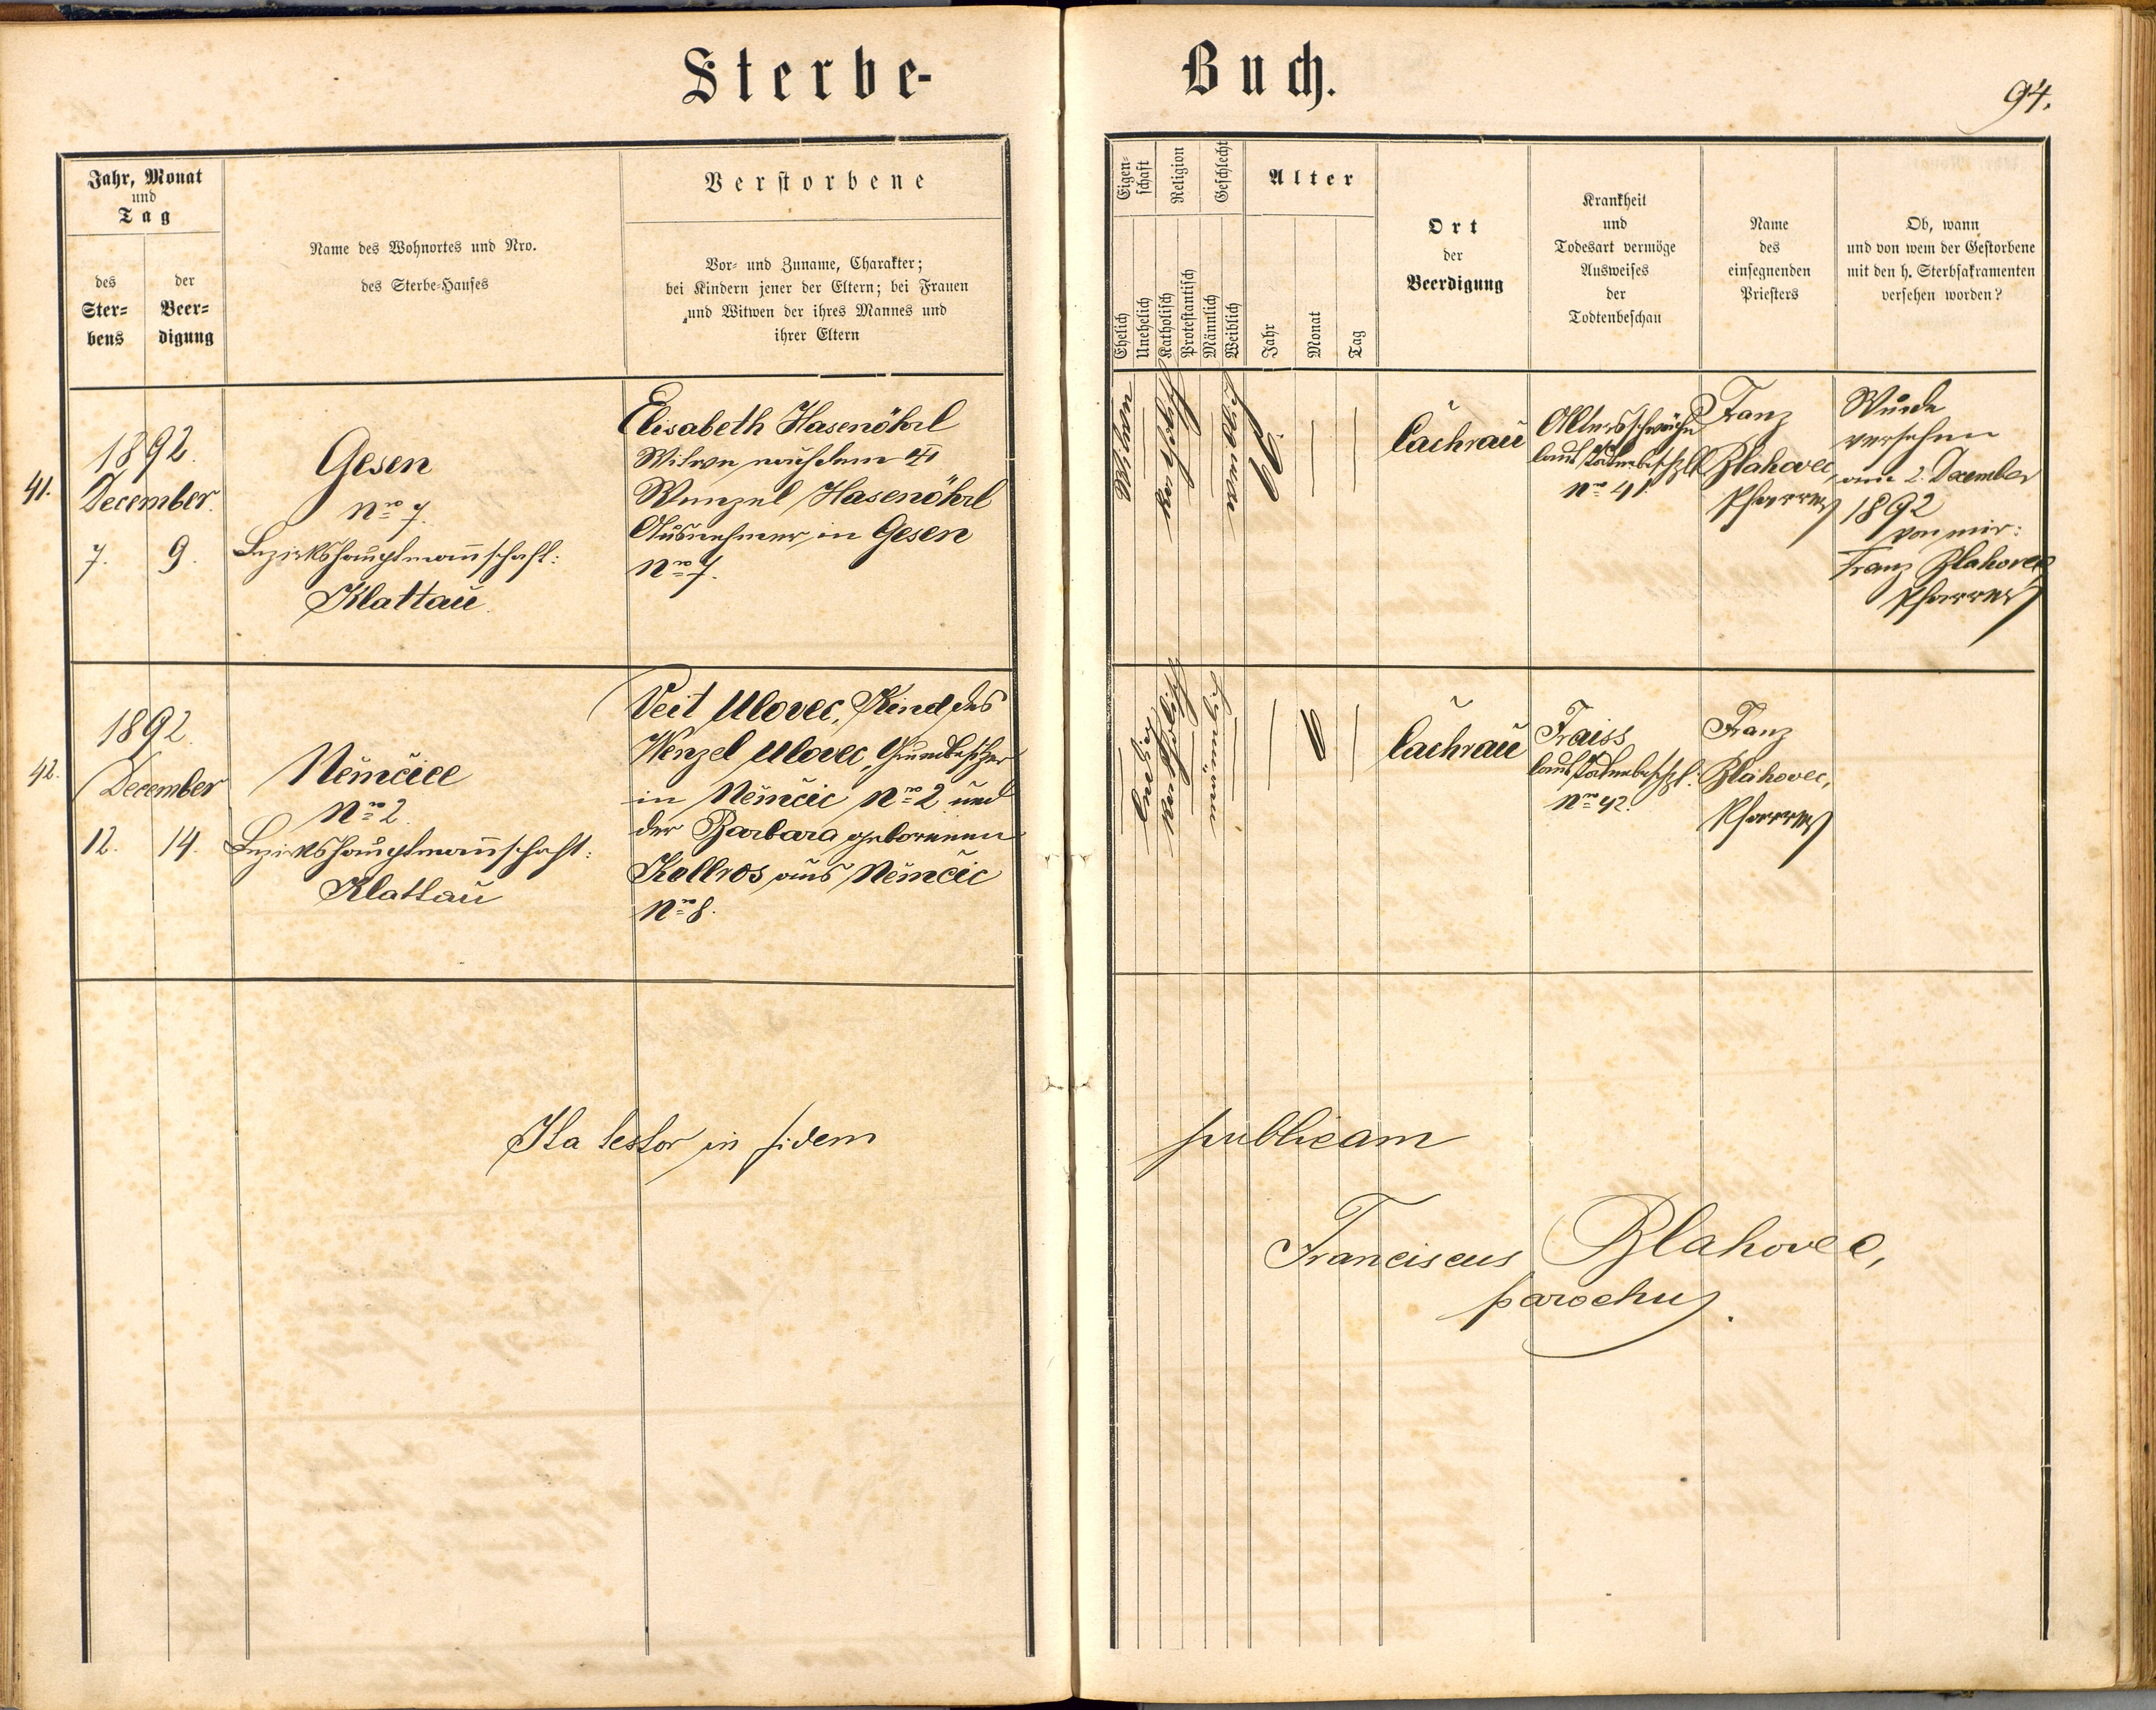 Sterbe-
Buch.
94.
Jahr, Monat
und
Tag
des
Ster-
bens
der
Beer-
digung
Name des Wohnortes und Nro.
des Sterbe-Hauses
Verstorbene
Vor- und Zuname, Charakter;
bei Kindern jener der Eltern; bei Frauen
und Witwen der ihres Mannes und
ihrer Eltern
Eigen-
schaft
Religion
Geschlecht
Ehelich
Unehelich
Katholisch
Protestantisch
Männlich
Weiblich
Alter
Jahr
Monat
Tag
Ort
der
Beerdigung
Krankheit
und
Todesart vermöge
Ausweises
der
Todtenbeschau
Name
des
einsegnenden
Priesters
Ob, wann
und von wem der Gestorbene
mit den h. Sterbsakramenten
versehen worden?
41.
1892.
December.
7. 9.
Gesen
Nro 7.
Bezirkshauptmannschaft:
Klattau.
Elisabeth Hasenöhrl
Witwe nach dem
Wenzel Hasenöhrl
Ausnehmer in Gesen
Nro 7.
Witwe
katholisch
Lachrau
Altersschwäche
laut Todtenbeschzl
Nro 41.
Franz
Blahovec,
Pfarrer
Wurde
versehen
am 2. Dezember
1892
von mir:
Franz Blahovec
Pfarrer
42.
1892.
December
12. 14.
Němčice
Nro 2.
Bezirkshauptmannschaft:
Klattau
Veit Ulovec, Kind des
Wenzel Ulovec, Grundbesitzer
in Němčic Nro 2 und
der Barbara geborenen
Kollros aus Němčic
Nro 8.
katholisch
Lachrau
Fraiss
laut Todtenbeschzl.
Nro 42.
Franz
Blahovec,
Pfarrer
Ita testor in fidem
publicam
Franciscus Blahovec,
parochus.